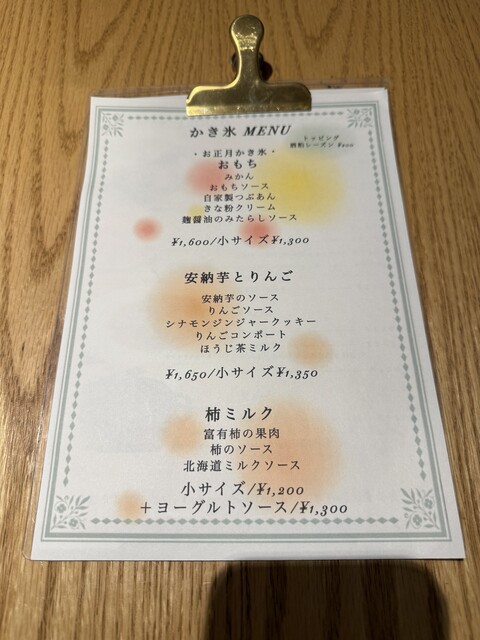 かき氷 MENU
トッピング
酒粕レーズン ¥200
・お正月かき氷・
おもち
みかん
おもちソース
自家製つぶあん
きな粉クリーム
麹醤油のみたらしソース
¥1,600/小サイズ¥1,300
安納芋とりんご
安納芋のソース
りんごソース
シナモンジンジャークッキー
りんごコンポート
ほうじ茶ミルク
¥1,650/小サイズ¥1,350
柿ミルク
富有柿の果肉
柿のソース
北海道ミルクソース
小サイズ/¥1,200
＋ヨーグルトソース/¥1,300